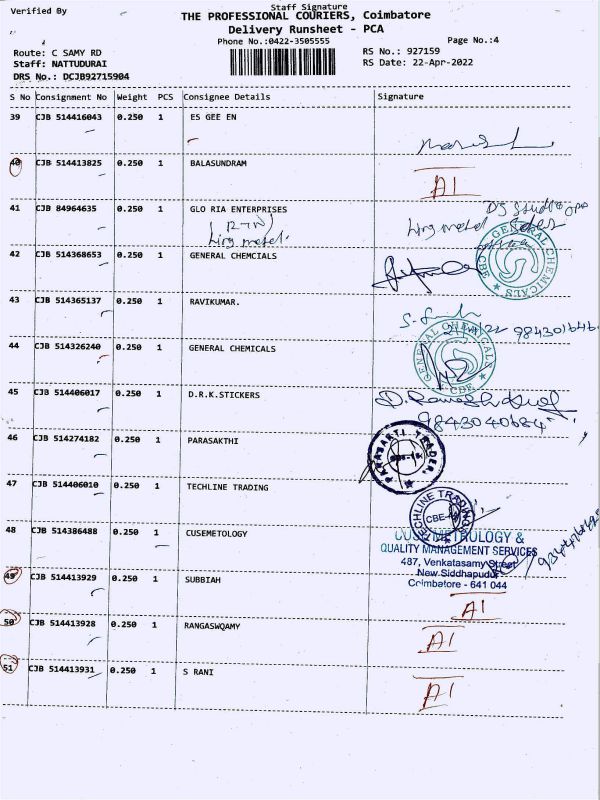 Verified By
Staff Signature
THE PROFESSIONAL COURIERS, Coimbatore
Delivery Runsheet - PCA
Phone No.:0422-3505555
Page No.:4
Route: C SAMY RD
RS No.: 927159
Staff: NATTUDURAI
RS Date: 22-Apr-2022
DRS No.: DCJB92715904
S No Consignment No Weight PCS Consignee Details Signature
39 CJB 514416043 0.250 1 ES GEE EN
40 CJB 514413825 0.250 1 BALASUNDRAM AI
41 CJB 84964635 0.250 1 GLO RIA ENTERPRISES
42 CJB 514368653 0.250 1 GENERAL CHEMCIALS
GENERAL CHEMICALS CBE
43 CJB 514365137 0.250 1 RAVIKUMAR.
984301646
44 CJB 514326240 0.250 1 GENERAL CHEMICALS
GENERAL CHEMICALS CBE
45 CJB 514406017 0.250 1 D.R.K.STICKERS
9843040684
46 CJB 514274182 0.250 1 PARASAKTHI
PARASAKTI TRADER
47 CJB 514406010 0.250 1 TECHLINE TRADING
TECHLINE TRADING
48 CJB 514386488 0.250 1 CUSEMETOLOGY
CUSEMETROLOGY &
QUALITY MANAGEMENT SERVICES
487, Venkatasamy Street
New Siddhapudur
Coimbatore - 641 044
49 CJB 514413929 0.250 1 SUBBIAH AI
50 CJB 514413928 0.250 1 RANGASWQAMY AI
51 CJB 514413931 0.250 1 S RANI AI